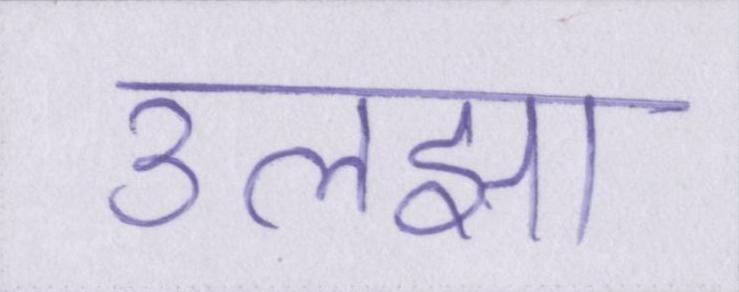 उलझा